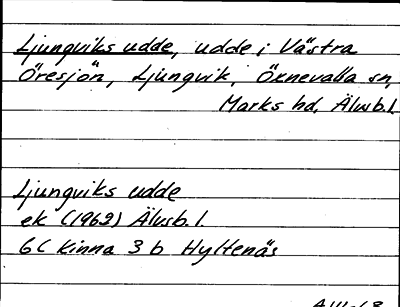 Ljungviks udde, udde i Västra
Öresjön, Ljungvik, Öxnevalla sn,
Marks hd, Älvsb. l.
Ljungviks udde
ek (1969) Älvsb. l.
6C Kinna 3 b Hyltenäs